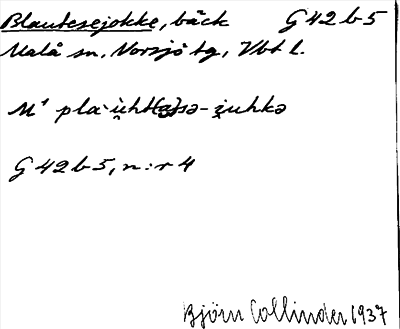 Blautesejokke, bäck G 42 b 5
Malå sn, Norsjö tg, Vbt l.
M' pla·ùht(ə)sə-i̯uhkə
G 42 b 5, n:r 4
Björn Collinder 1937